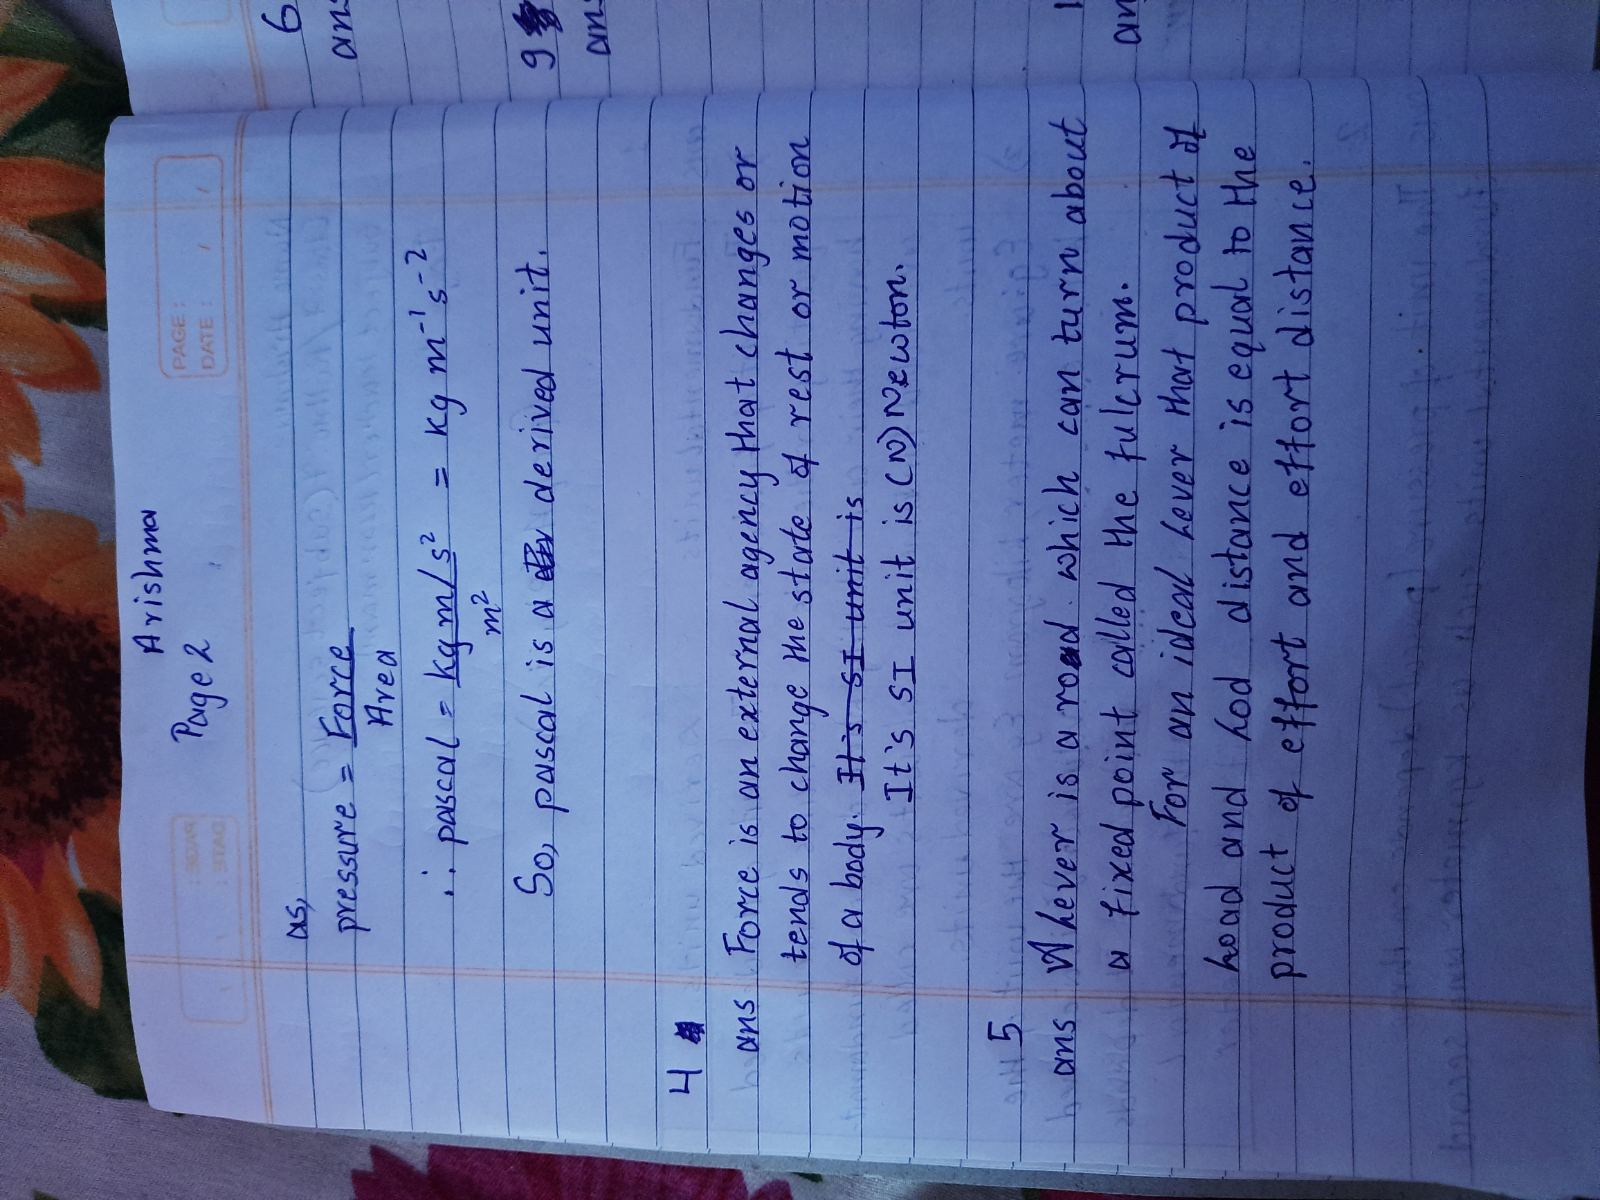 Arishma
Page 2
PAGE:
DATE:
as,
pressure = Force
Area
∴ pascal = kg m/s² = kg m⁻¹ s⁻²
m²
So, pascal is a derived unit.
4
ans Force is an external agency that changes or
tends to change the state of rest or motion
of a body. It's SI unit is
It's SI unit is (N) Newton.
5
ans A lever is a road which can turn about
a fixed point called the fulcrum.
For an ideal lever that product of
load and lod distance is equal to the
product of effort and effort distance.
6
ans
9
ans
ans